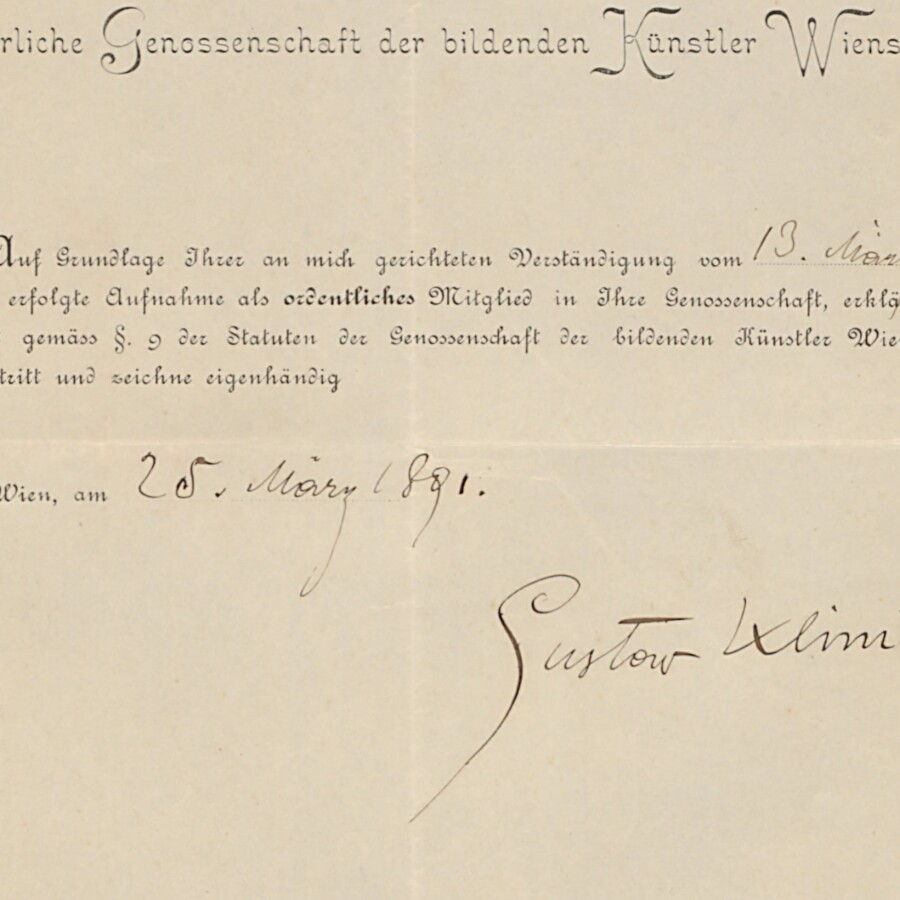 rliche Genossenschaft der bildenden Künstler Wiens
Auf Grundlage Ihrer an mich gerichteten Verständigung vom 13. März
erfolgte Aufnahme als ordentliches Mitglied in Ihre Genossenschaft, erklä
gemäss §. 9 der Statuten der Genossenschaft der bildenden Künstler Wie
tritt und zeichne eigenhändig
Wien, am 25. März 1891.
Gustav Klimt